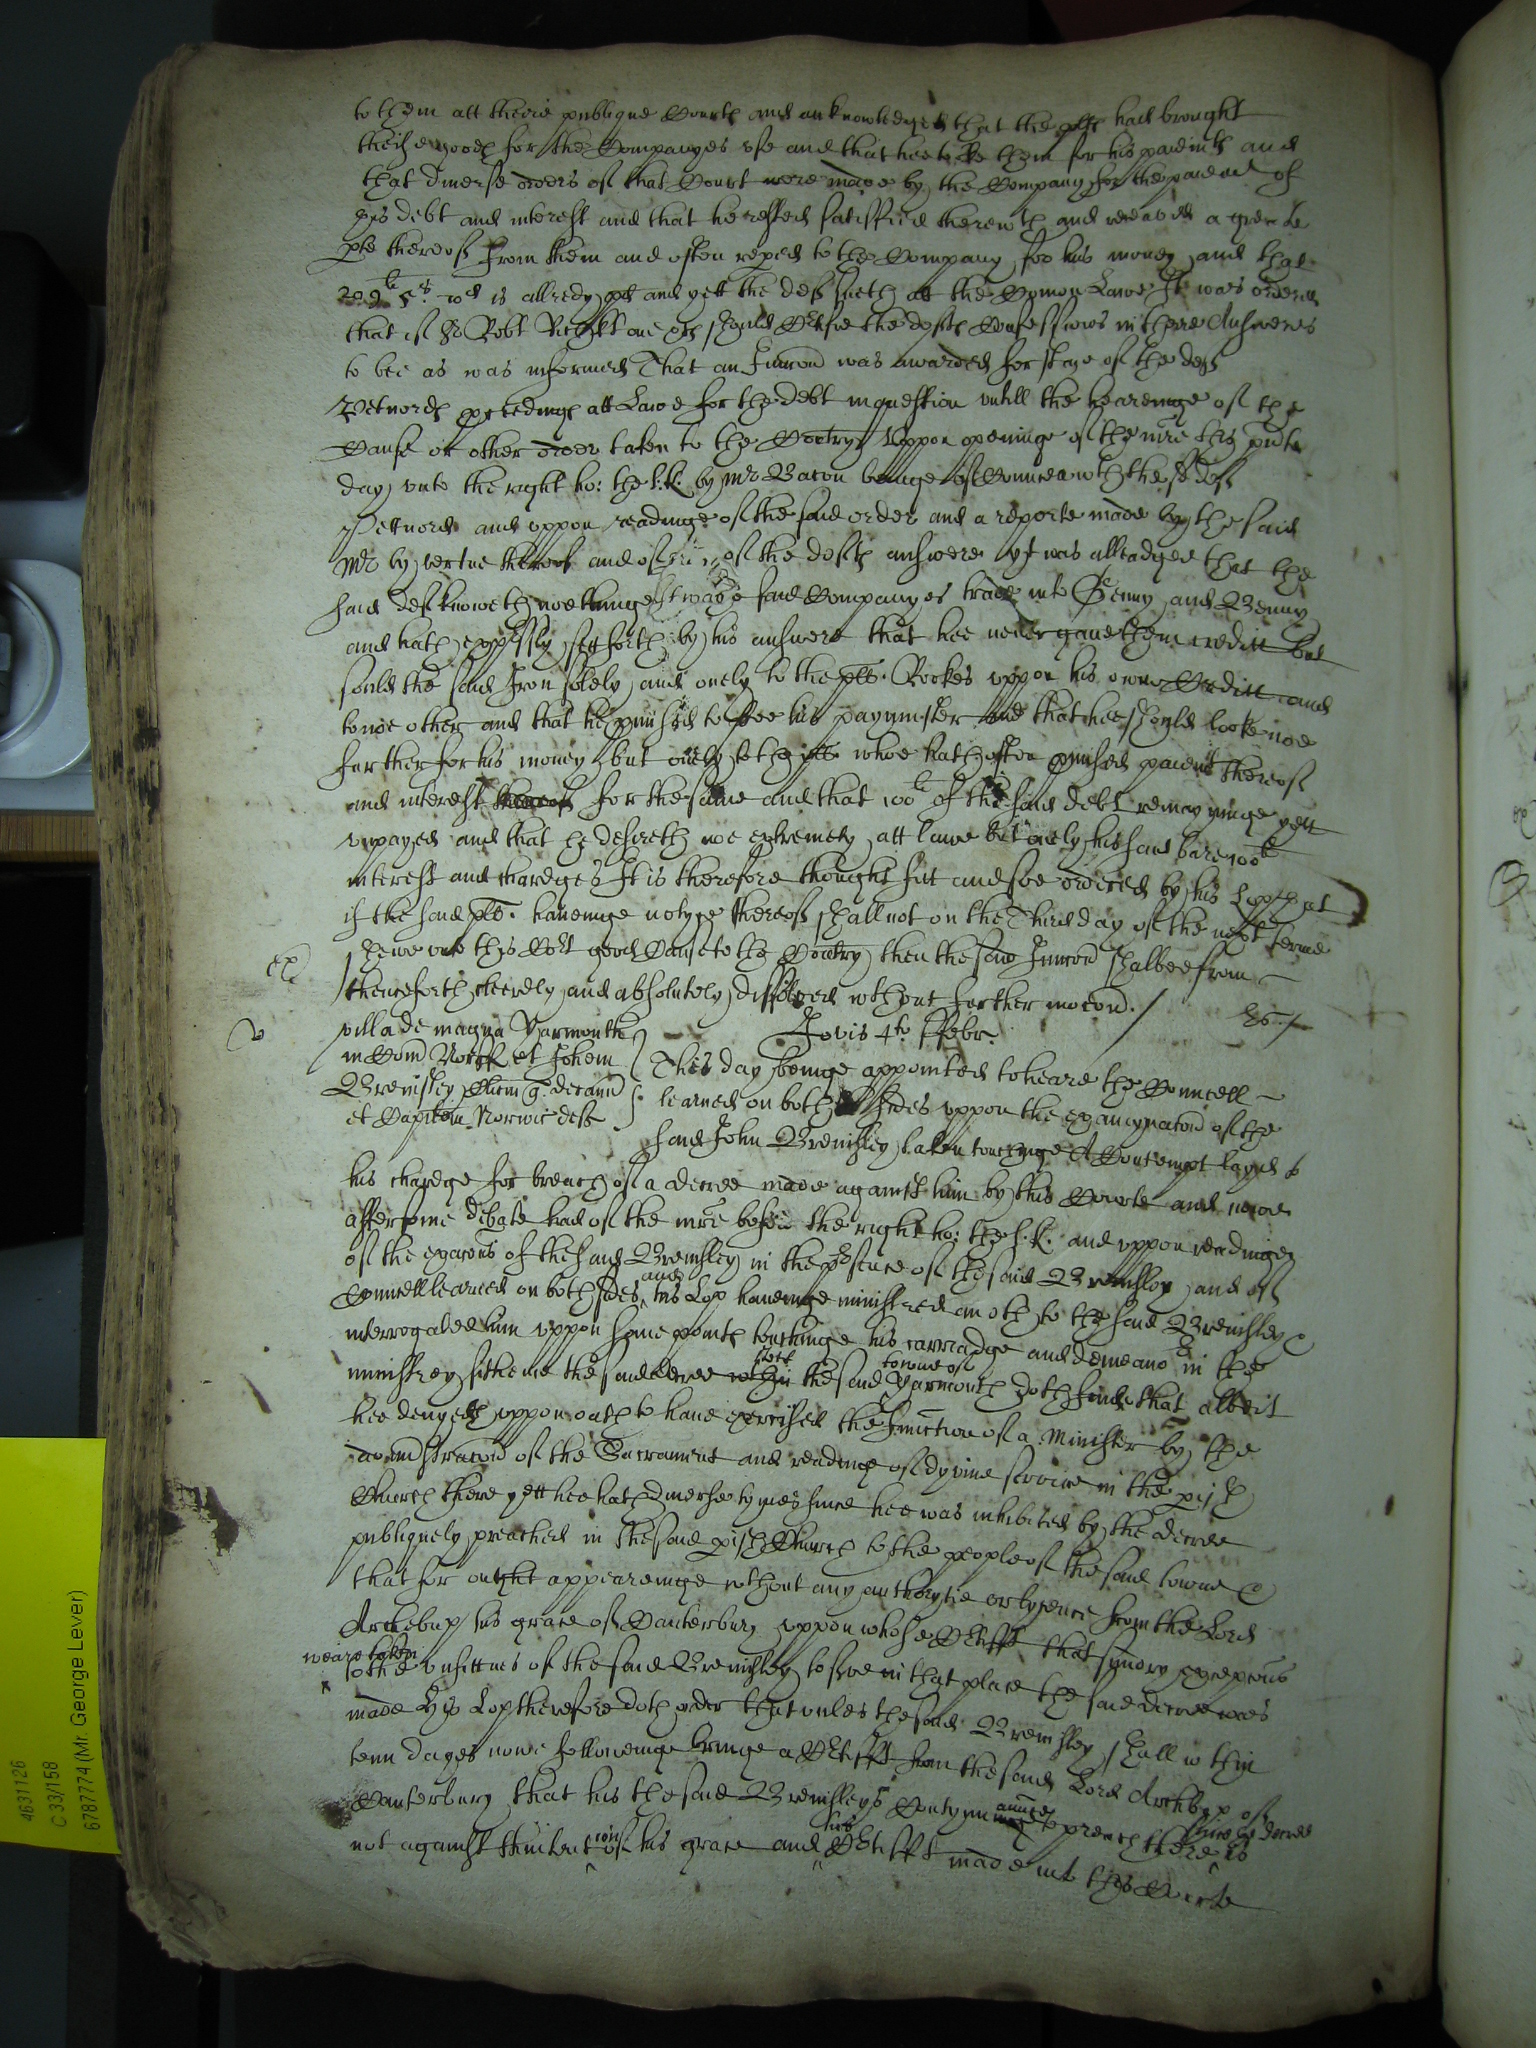 to them att theire publique Courts and acknowledged that the plts had brought
theise goods for the Companyes use and that hee tooke them for his paieints and
that diverse orders of that Court were made by the Company for the paiemt of
his debt and interest and that he rested satisffied therewth and receaved a greate
pte thereof from them and often reped to the Company for his money and that
209li 5s 10d is allredy pd and yett the deft sueth att the Comon Lawe It was ordered
that if Sr Robt should Certifie the defts Confessions in there Answeres
to bee as was informed That an Iniuncon was awarded for staye of the defts
Petnords pceedings att Lawe for the debt in question untill the heareinge of the
Cause or other order taken to the Contrye Uppon openinge of the mre this pnte
day unto the right ho: the L.K. by Mr Bacon beinge of Councell wth these deft
Pettnord and uppon readinge of the said order and a reporte made by the said
Mr by vertue thereof and of the defts answere yt was alleadged that the
said deft knoweth noe thinge of the said Companyes trade into Genny and Benny
and hath expressly sett forth by his answere that hee never gave them creditt but
sould the said Iron solely and onely to the plt. Rookes uppon his owne Creditt and
to noe other and that he pmissed to see his paymaster and that hee should looke noe
further for his money but onely to the plt whoe hath often pmised paieint thereof
and interest for the same and that 100li of the said debt remayninge yett
unpayed and that he desireth noe extremety att lawe but onely his said bare 100li
interest and chardges It is therefore thought fitt and soe ordered by his Lopp that
if the said plt. haveinge notyce thereof shall not on the Third day of the next terme
shewe unto this Cort good Cause to the Contrary then the said Iniuncon shalbee from
thenceforth cleerely and absolutely dissolved wthout further mocon. /
ex
Jovis 4to ffebr.
villa de magna Yarmouthe
in Com Norff et Johem
Bremsley Quer. decann
et Capitem Norwic deft
This day beinge appointed to heare the Councell
learned on both sides uppon the examynacon of the
said John Bremsley taken touchinge A Contempt layed to
his chardge for breach of a decree made against him by this Courte and nowe
after some debate had of the mre before the right ho: the L.K. and uppon readinge
of the exacons of the said Bremsley in the psence of the said Bremsley and of
Councell learned on both sides and his Lop haveinge ministred an oth to the said Bremsley
interrogated him uppon some points touchinge his carriadge and demeanor in the
ministrey sithence the said decree wthin the said towne of Yarmouth doth finde that albeit
hee denyeth uppon oath to have exercised the function of a Minister by the
administracon of the Sacrament and readinge of dyvine service in the pish
Church there yett hee hath diverse tymes since hee was inhibited by the decree
publiquely preached in the said pish Church to the people of the said towne &
that for ought appeareinge wthout any authorytie or lycence from the Lord
Archebup his grace of Canterbury uppon whose Certifft that sundry excepcons
weare taken
to the unfittnes of the said Bremsley to serve in that place the said decree was
made His Lop therefore doth order that unles the said Bremsley shall wthin
tenn dayes nowe followeinge bringe a Certifft from the said Lord Archbup of
Canterbury that his the said Bremsleys Contynuance to preach there since the decree is
not against thintencon of his grace and his Certifft made into this Courte
4631126
C 33/158
6787774 (Mr. George Lever)